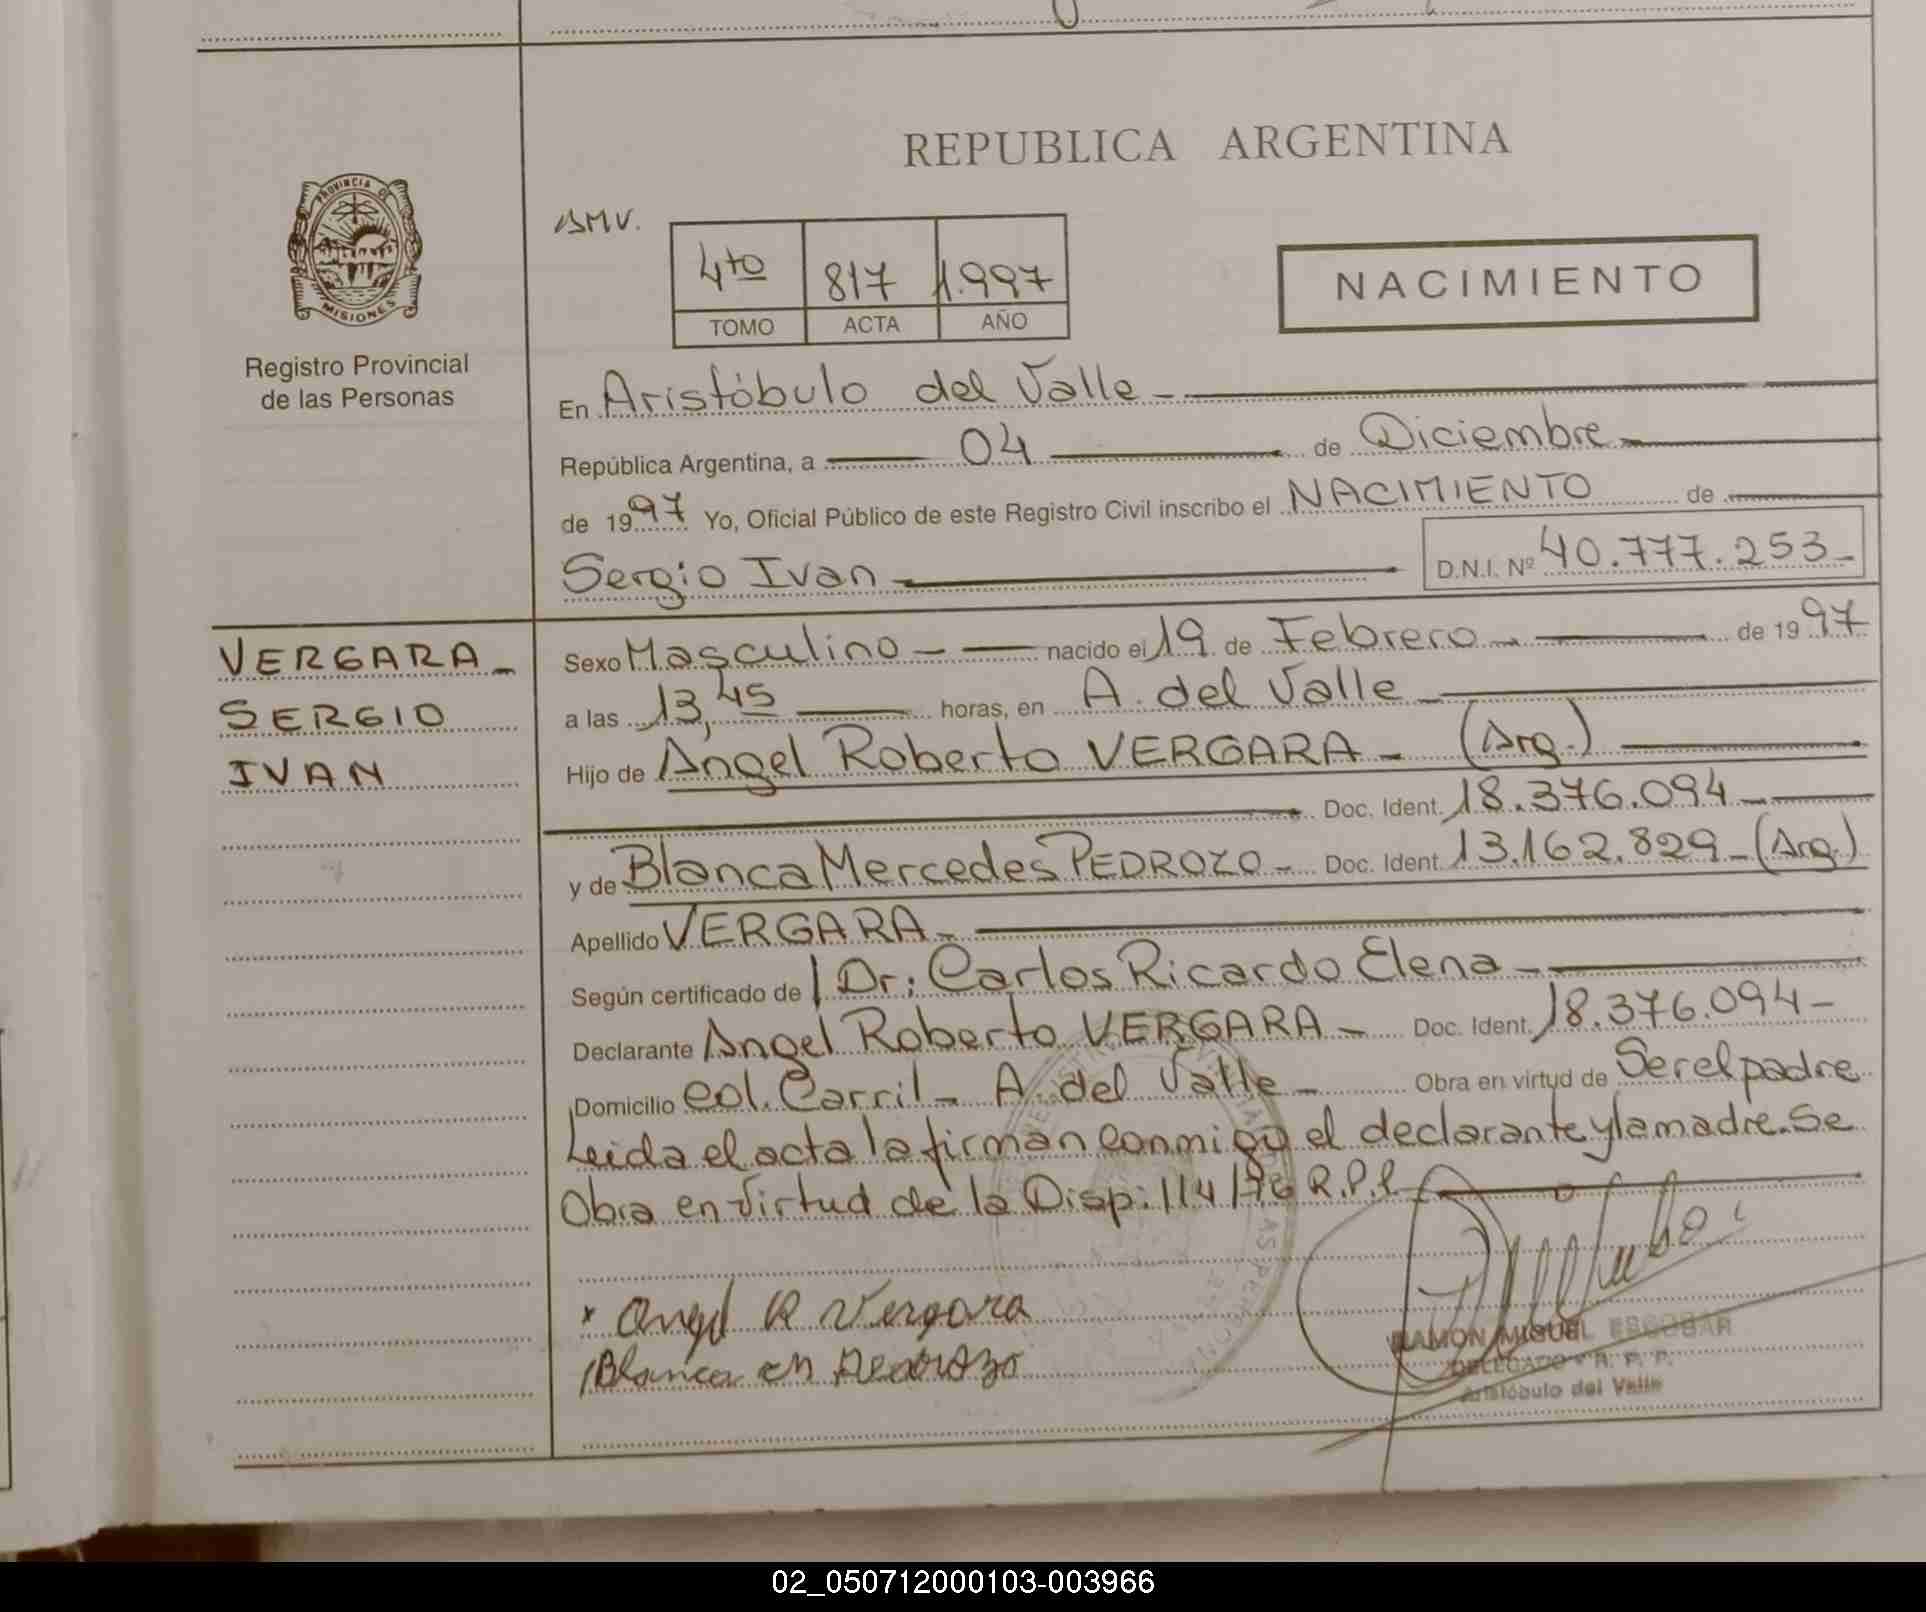 REPUBLICA ARGENTINA
PROVINCIA DE
MISIONES
Registro Provincial
de las Personas
SMV.
4to 817 1.997
TOMO ACTA AÑO
NACIMIENTO
En Aristóbulo del Valle -
República Argentina, a 04 de Diciembre
de 1997 Yo, Oficial Público de este Registro Civil inscribo el NACIMIENTO de
Sergio Ivan
D.N.I. Nº 40.777.253-
VERGARA -
SERGIO
IVAN
Sexo Masculino - nacido el 19 de Febrero - de 1997
a las 13,45 horas, en A. del Valle
Hijo de Angel Roberto VERGARA - (Arg.)
Doc. Ident. 18.376.094
y de Blanca Mercedes PEDROZO - Doc. Ident. 13.162.829 - (Arg.)
Apellido VERGARA -
Según certificado de Dr: Carlos Ricardo Elena -
Declarante Angel Roberto VERGARA - Doc. Ident. 18.376.094 -
Domicilio Col. Carril - A. del Valle - Obra en virtud de Ser el padre
Leida el acta la firman conmigo el declarante y la madre. Se
Obra en virtud de la Disp: 114/76 R.P.P.
x Angel R Vergara
Blanca M Pedrozo
RAMON MIGUEL ESCOBAR
DELEGADO - R. P. P.
Aristóbulo del Valle
02_050712000103-003966